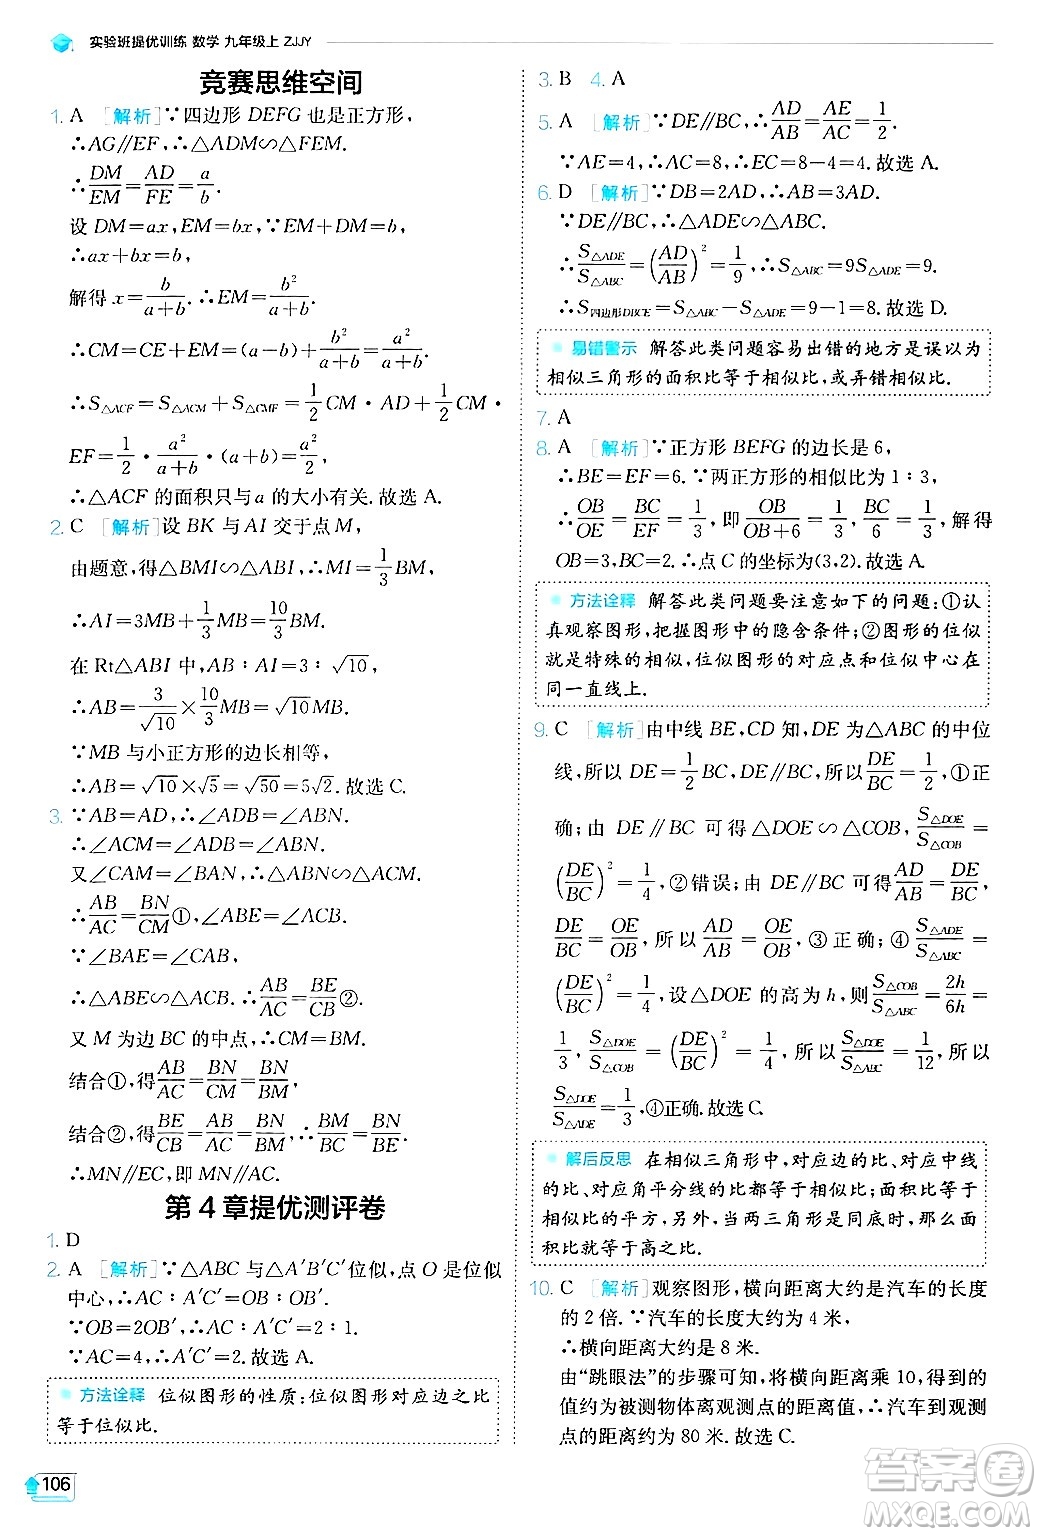 实验班提优训练 数学 九年级上 ZJJY
竞赛思维空间
1. A [解析]∵四边形 DEFG 也是正方形,
∴AG∥EF,∴△ADM∽△FEM.
∴DM/EM=AD/FE=a/b.
设 DM=ax,EM=bx,∵EM+DM=b,
∴ax+bx=b,
解得 x=b/(a+b).∴EM=b²/(a+b).
∴CM=CE+EM=(a-b)+b²/(a+b)=a²/(a+b).
∴S△ACF=S△ACM+S△CMF=1/2 CM·AD+1/2 CM·
EF=1/2·a²/(a+b)·(a+b)=a²/2.
∴△ACF 的面积只与 a 的大小有关.故选 A.
2. C [解析]设 BK 与 AI 交于点 M,
由题意,得△BMI∽△ABI,∴MI=1/3 BM.
∴AI=3MB+1/3 MB=10/3 BM.
在 Rt△ABI 中,AB∶AI=3∶√10,
∴AB=3/√10×10/3 BM=√10 BM.
∵MB 与小正方形的边长相等,
∴AB=√10×√5=√50=5√2.故选 C.
3. ∵AB=AD,∴∠ADB=∠ABN.
∴∠ACM=∠ADB=∠ABN.
又∠CAM=∠BAN,∴△ABN∽△ACM.
∴AB/AC=BN/CM①,∠ABE=∠ACB.
∵∠BAE=∠CAB,
∴△ABE∽△ACB.∴AB/AC=BE/CB②.
又 M 为边 BC 的中点,∴CM=BM.
结合①,得AB/AC=BN/CM=BN/BM,
结合②,得BE/CB=AB/AC=BN/BM,∴BM/BC=BN/BE.
∴MN∥EC,即 MN∥AC.
第 4 章提优测评卷
1. D
2. A [解析]∵△ABC 与△A′B′C′位似,点 O 是位似
中心,∴AC∶A′C′=OB∶OB′.
∵OB=2OB′,∴AC∶A′C′=2∶1.
∵AC=4,∴A′C′=2.故选 A.
方法诠释 位似图形的性质:位似图形对应边之比
等于位似比.
106
3. B 4. A
5. A [解析]∵DE∥BC,∴AD/AB=AE/AC=1/2.
∵AE=4,∴AC=8,∴EC=8-4=4.故选 A.
6. D [解析]∵DB=2AD,∴AB=3AD.
∵DE∥BC,∴△ADE∽△ABC,
∴S△ADE/S△ABC=(AD/AB)²=1/9,∴S△ABC=9S△ADE=9.
∴S四边形DBCE=S△ABC-S△ADE=9-1=8.故选 D.
易错警示 解答此类问题容易出错的地方是误以为
相似三角形的面积比等于相似比,或弄错相似比.
7. A
8. A [解析]∵正方形 BEFG 的边长是 6,
∴BE=EF=6.∵两正方形的相似比为 1∶3,
∴OB/OE=BC/EF=1/3,即 OB/(OB+6)=BC/6=1/3,解得
OB=3,BC=2.∴点 C 的坐标为(3,2).故选 A.
方法诠释 解答此类问题要注意如下的问题:①认
真观察图形,把握图形中的隐含条件;②图形的位似
就是特殊的相似,位似图形的对应点和位似中心在
同一直线上.
9. C [解析]由中线 BE,CD 知,DE 为△ABC 的中位
线,所以 DE=1/2 BC,即 DE/BC=1/2,①正
确;由 DE∥BC 可得△DOE∽△COB,S△DOE/S△COB=
(DE/BC)²=1/4,②错误;由 DE∥BC 可得AD/AB=
DE/BC=OE/OB,所以AD/AB=OE/OB,③正确;④S△ADE/S△ABC=
(DE/BC)²=1/4,设△DOE 的高为 h,则S△COB/S△ABC=2h/6h=
1/3,S△DOE/S△COB=(DE/BC)²=1/4,所以S△DOE/S△ABC=1/12,所以
S△DOE/S△ADE=1/3,④正确.故选 C.
解后反思 在相似三角形中,对应边的比、对应中线
的比、对应角平分线的比都等于相似比;面积比等于
相似比的平方,另外,当两三角形是同底时,那么面
积比就等于高之比.
10. C [解析]观察图形,横向距离大约是汽车的长度
的 2 倍.∵汽车的长度大约为 4 米,
∴横向距离大约为 8 米.
由“跳眼法”的步骤可知,将横向距离乘 10,得到的
值约为被测物体离观测点的距离值,∴汽车到观测
点的距离约为 80 米.故选 C.
答案圈
MXQE.COM